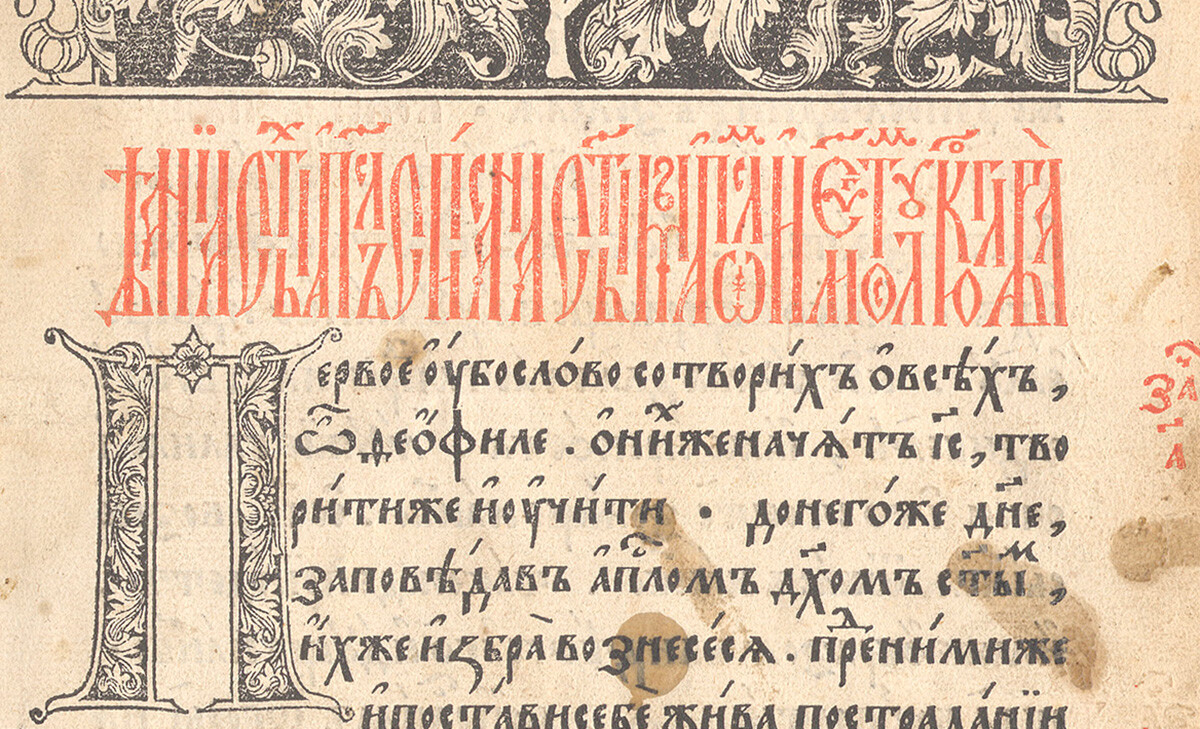 Дѣѧнїѧ ст҃ыⷯ ап҃лъ списанїѧ ст҃ыⷨ
Первое ᲂу҆́бо сло́во сотвори́хъ ѻ҆ всѣ́хъ,
ѽ ѳеѻ́филе . ѻ҆ ни́ⷯже начѧ́тъ і҆с҃, тво
ри́ти же и҆ ᲂу҆чи́ти • до него́же дн҃е,
заповѣ́давъ а҆п҃ломъ дх҃омъ ст҃ы́ⷨ,
и҆́хже и҆збра̀ вознесе́сѧ . преⷣ ни́миже
и҆ поста́ви себе жи́ва по страда́нїи